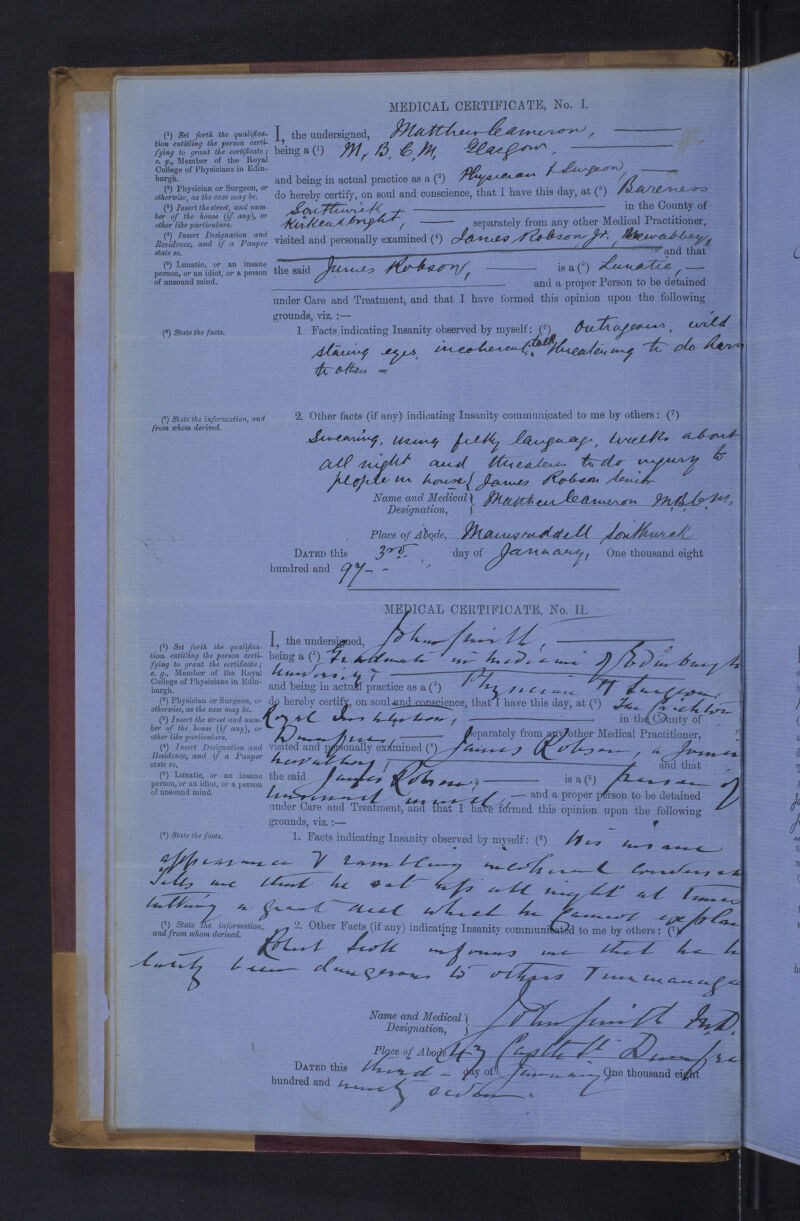 MEDICAL CERTIFICATE, No. I.
(¹) Set forth the qualifica-
tion entitling the person certi-
fying to grant the certificate;
e. g., Member of the Royal
College of Physicians in Edin-
burgh.
(²) Physician or Surgeon, or
otherwise, as the case may be.
(³) Insert the street, and num-
ber of the house (if any), or
other like particulars.
(⁴) Insert Designation and
Residence, and if a Pauper
state so.
(⁵) Lunatic, or an insane
person, or an idiot, or a person
of unsound mind.
I, the undersigned, Matthew Cameron,
being a (¹) M. B. C. M. Glasgow,
and being in actual practice as a (²) Physician & Surgeon,
do hereby certify, on soul and conscience, that I have this day, at (³)
Southwick in the County of
Kirkcudbright, separately from any other Medical Practitioner,
visited and personally examined (⁴) James Robson Jr., Newabbey,
and that
the said James Robson, is a (⁵) Lunatic,
and a proper Person to be detained
under Care and Treatment, and that I have formed this opinion upon the following
grounds, viz. :—
(⁶) State the facts.
1 Facts indicating Insanity observed by myself: (⁶) Outrageous, wild
staring eyes, incoherent talk, threatening to do harm
to others
(⁷) State the information, and
from whom derived.
2. Other facts (if any) indicating Insanity communicated to me by others: (⁷)
Swearing, using filthy language, walks about
all night and threatens to do injury to
people in house { James Robson Senior
Name and Medical Designation, } Matthew Cameron M.B.C.M.
Place of Abode, Southwick
DATED this 3rd day of January, One thousand eight
hundred and 97
MEDICAL CERTIFICATE, No. II.
(¹) Set forth the qualifica-
tion entitling the person certi-
fying to grant the certificate;
e. g., Member of the Royal
College of Physicians in Edin-
burgh.
(²) Physician or Surgeon, or
otherwise, as the case may be.
(³) Insert the street and num-
ber of the house (if any), or
other like particulars.
(⁴) Insert Designation and
Residence, and if a Pauper
state so.
(⁵) Lunatic, or an insane
person, or an idiot, or a person
of unsound mind.
I, the undersigned, John Smith,
being a (¹) Graduate in medicine of Edinburgh
University
and being in actual practice as a (²) Physician & Surgeon,
do hereby certify, on soul and conscience, that I have this day, at (³) The Crichton
Royal Institution, in the County of
Dumfries, separately from any other Medical Practitioner,
visited and personally examined (⁴) James Robson, a Joiner
Newabbey, and that
the said James Robson, is a (⁵) person of
unsound mind, and a proper person to be detained
under Care and Treatment, and that I have formed this opinion upon the following
grounds, viz. :—
(⁶) State the facts.
1. Facts indicating Insanity observed by myself: (⁶) His insane
appearance & rambling incoherent
Tells me that he sat up all night at times
a great deal which he cannot explain
(⁷) State the information,
and from whom derived.
2. Other Facts (if any) indicating Insanity communicated to me by others: (⁷)
Robert Scott informs me that he h
lately been dangerous to others & unmanagea
Name and Medical Designation, } John Smith M.D.
Place of Abode, Castle St Dumfries
DATED this third day of January, One thousand eight
hundred and ninety seven.